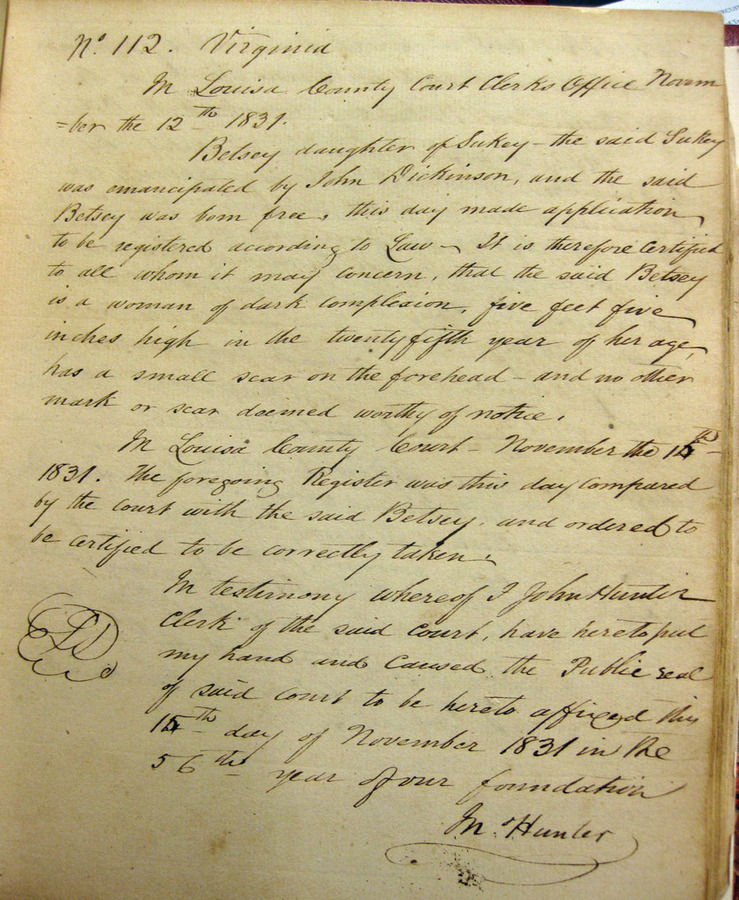 No. 112. Virginia
In Louisa County Court Clerks Office Novem
=ber the 12th 1831.
Betsey daughter of Sukey - the said Sukey
was emancipated by John Dickinson, and the said
Betsey was born free, this day made application
to be registered according to Law - It is therefore Certified
to all whom it may Concern, that the said Betsey
is a woman of dark complexion, five feet five
inches high in the twenty fifth year of her age,
has a small scar on the forehead - and no other
mark or scar deemed worthy of notice.
In Louisa County Court - November the 15th -
1831. The foregoing Register was this day compared
by the court with the said Betsey, and ordered to
be certified to be correctly taken.
In testimony whereof I John Hunter
Clerk of the said court, have hereto put
my hand and Caused the Public seal
of said court to be hereto affixed this
15th day of November 1831 in the
56th year of our foundation
Jn. Hunter